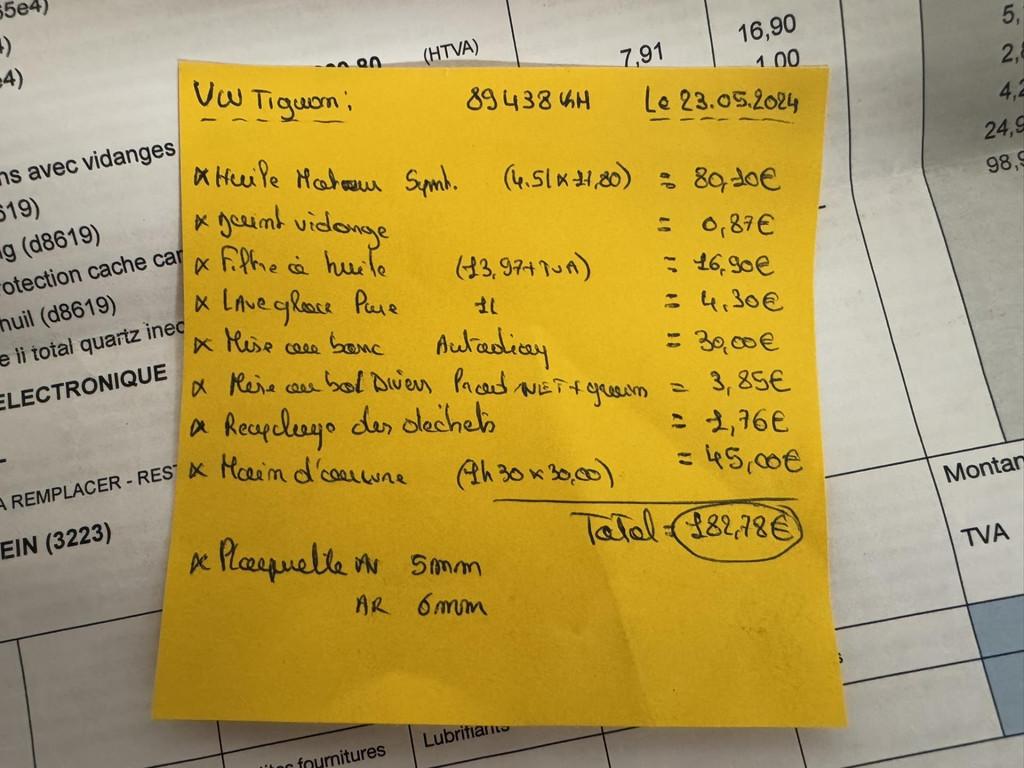 65e4)
4)
e4)
(HTVA)
7,91
16,90
1,00
5,
2,8
4,2
24,9
98,9
ns avec vidanges
619)
g (d8619)
rotection cache car
huil (d8619)
e ii total quartz inec
ELECTRONIQUE
A REMPLACER - REST
EIN (3223)
VW Tiguan : 89438 KM Le 23.05.2024
* Huile Moteur Synt. (4.5l x 17,80) = 80,10€
* Joint vidange = 0,87€
* Filtre à huile (13,97+TVA) = 16,90€
* Lave glace Pure 1L = 4,30€
* Mise au banc Autodiag = 30,00€
* Mise au bol Divers Prod NET + = 3,85€
* Recyclage des déchets = 1,76€
* Main d'œuvre (1h30 x 30,00) = 45,00€
Total = 182,78€
* Plaquette AV 5mm
AR 6mm
Montan
TVA
tes fournitures
Lubrifiants